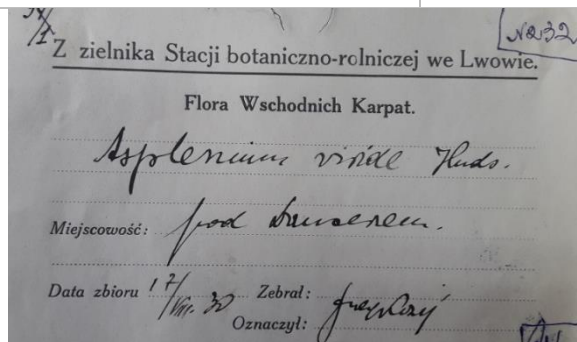 № 232
Z zielnika Stacji botaniczno-rolniczej we Lwowie.
Flora Wschodnich Karpat.
Asplenium viride Huds.
Miejscowość: pod
Data zbioru 17/VIII. 30 Zebrał:
Oznaczył: